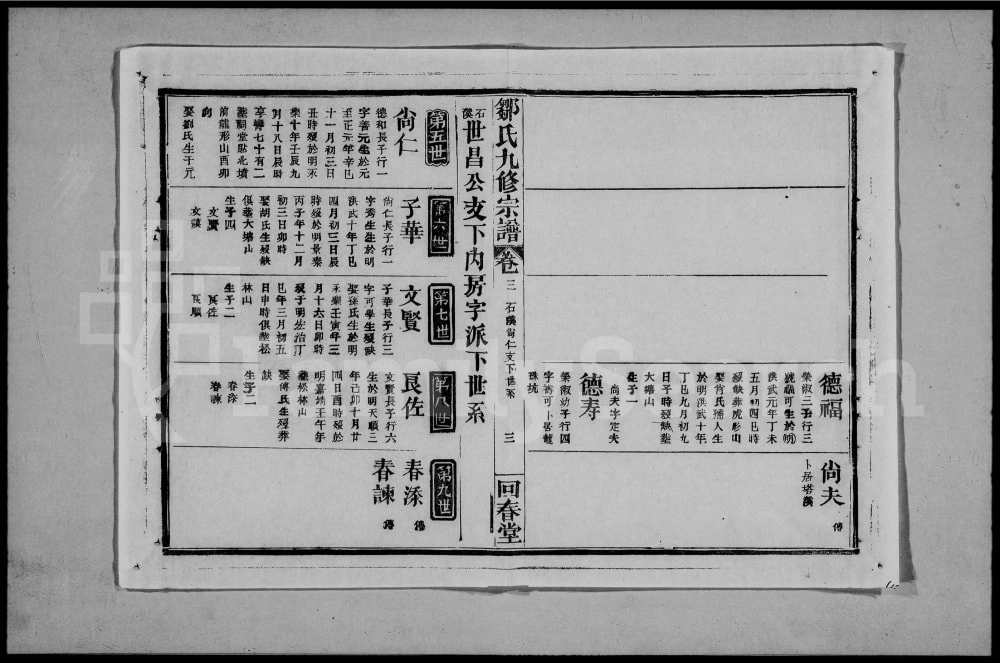 德福
榮淑三子行三
號福可生於明
洪武元年丁未
五月初四巳時
歿缺葬虎形山
娶肖氏孺人生
於明洪武十年
丁巳九月初九
日子時歿缺塟
大塘山
生子一
尙夫字定夫
德寿
榮淑幼子行四
字壽可卜居龍
珠坑
尙夫
卜居塔溪
傳
鄒氏九修宗譜
卷三
石溪尙仁支下世系
三
回春堂
石溪世昌公支下内房字派下世系
第五世
尙仁
德和長子行一
字善元生於元
至正元年辛巳
十一月初三日
丑時歿於明永
樂十年壬辰九
月十八日辰時
享壽七十有二
塟嗣堂貼北墳
前龍形山酉卯
向
娶劉氏生于元
第六世
子華
尙仁長子行一
字秀生生於明
洪武十年丁巳
四月初三日辰
時歿於明景泰
丙子年十二月
初三日卯時
娶胡氏生歿缺
俱塟大塘山
生子四
文賢
文謨
第七世
文賢
子華長子行三
字可學生歿缺
娶孫氏生於明
永樂壬寅年三
月十六日卯時
歿于明弘治丁
巳年三月初五
日申時俱塟松
林山
生子二
良佐
良順
第八世
良佐
文賢長子行六
生於明天順三
年己卯十月廿
四日酉時歿於
明嘉靖壬午年
塟松林山
娶傅氏生歿葬
缺
生子二
春漆
春諫
第九世
春漆
傳
春諫
傳